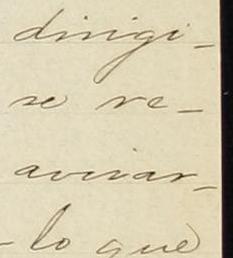 dirigi-
se re-
avisar-
-lo que